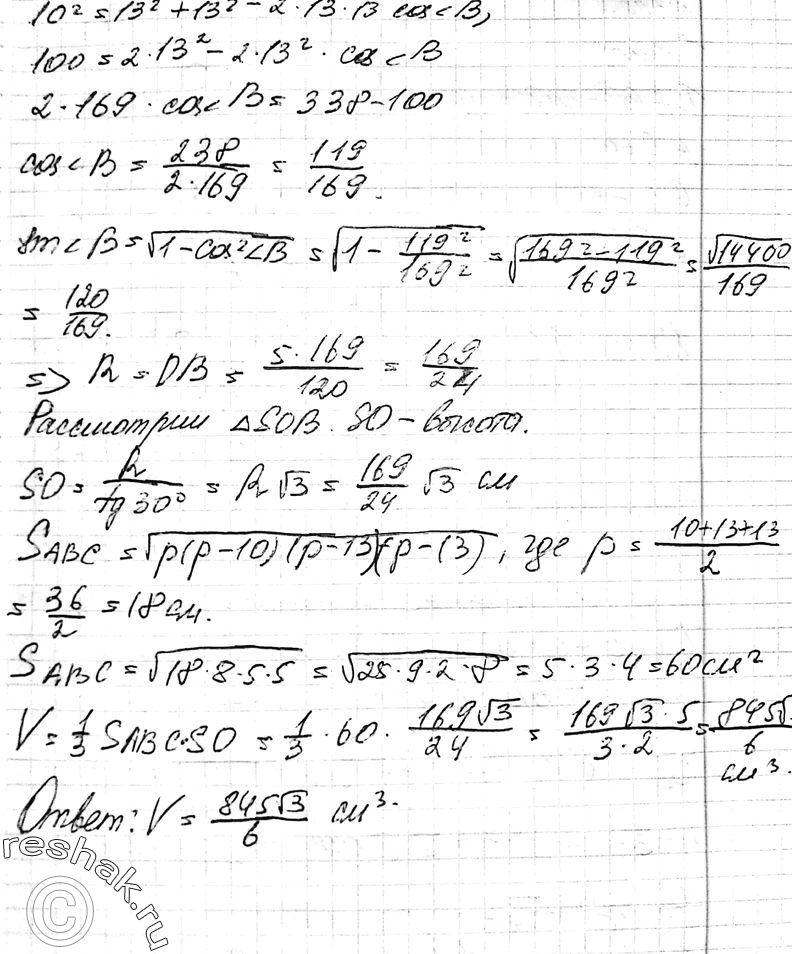 10² = 13² + 13² - 2 · 13 · 13 cos<B,
100 = 2 · 13² - 2 · 13² · cos<B
2 · 169 · cos<B = 338 - 100
cos<B = 238/(2·169) = 119/169.
sin<B = √(1-cos²<B) = √(1 - 119²/169²) = √((169²-119²)/169²) = √14400/169
= 120/169.
=> R = OB = 5·169/120 = 169/24
Рассмотрим △SOB. SO - высота.
SO = R/tg30° = R√3 = 169/24 √3 см
SABC = √(p(p-10)(p-13)(p-13)), где p = (10+13+13)/2
= 36/2 = 18 см.
SABC = √(18·8·5·5) = √(25·9·2·8) = 5·3·4 = 60 см²
V = 1/3 SABC·SO = 1/3 · 60 · 169√3/24 = 169√3·5/(3·2) = 845√/6
см³.
Ответ: V = 845√3/6 см³.
reshak.ru
©